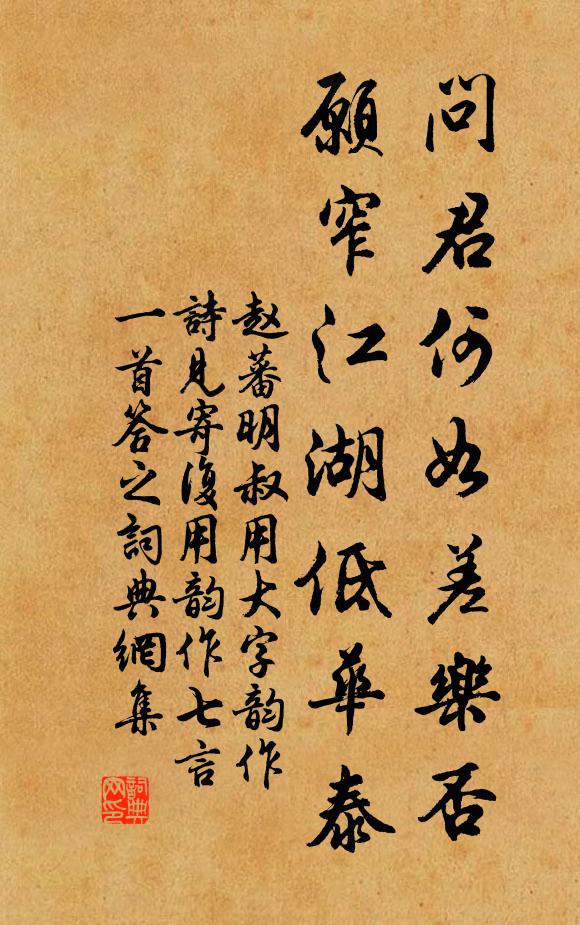 問君何如差樂否
願窄江湖低華泰
赵蕃明叔用大字韵作
詩見寄復用韵作七言
一首答之詞典網集
詞典
网印